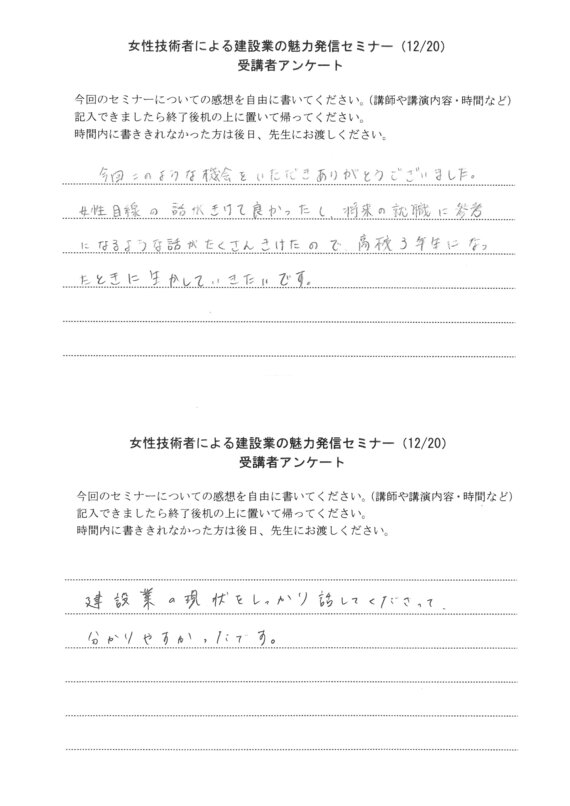 女性技術者による建設業の魅力発信セミナー（12/20）
受講者アンケート
今回のセミナーについての感想を自由に書いてください。（講師や講演内容・時間など）
記入できましたら終了後机の上に置いて帰ってください。
時間内に書ききれなかった方は後日、先生にお渡しください。
今回このような機会をいただきありがとうございました。
女性目線の話がきけて良かったし、将来の就職に参考
になるような話がたくさんきけたので、高校3年生になっ
たときに生かしていきたいです。
女性技術者による建設業の魅力発信セミナー（12/20）
受講者アンケート
今回のセミナーについての感想を自由に書いてください。（講師や講演内容・時間など）
記入できましたら終了後机の上に置いて帰ってください。
時間内に書ききれなかった方は後日、先生にお渡しください。
建設業の現状をしっかり話してくださって、
分かりやすかったです。